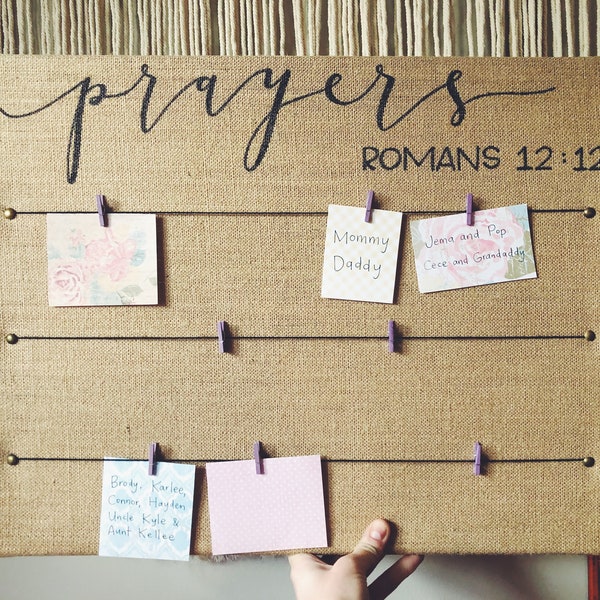 prayers
ROMANS 12:12
Mommy
Daddy
Jema and Pop
Cece and Grandaddy
Brody, Karlee,
Connor, Hayden
Uncle Kyle &
Aunt Kellee